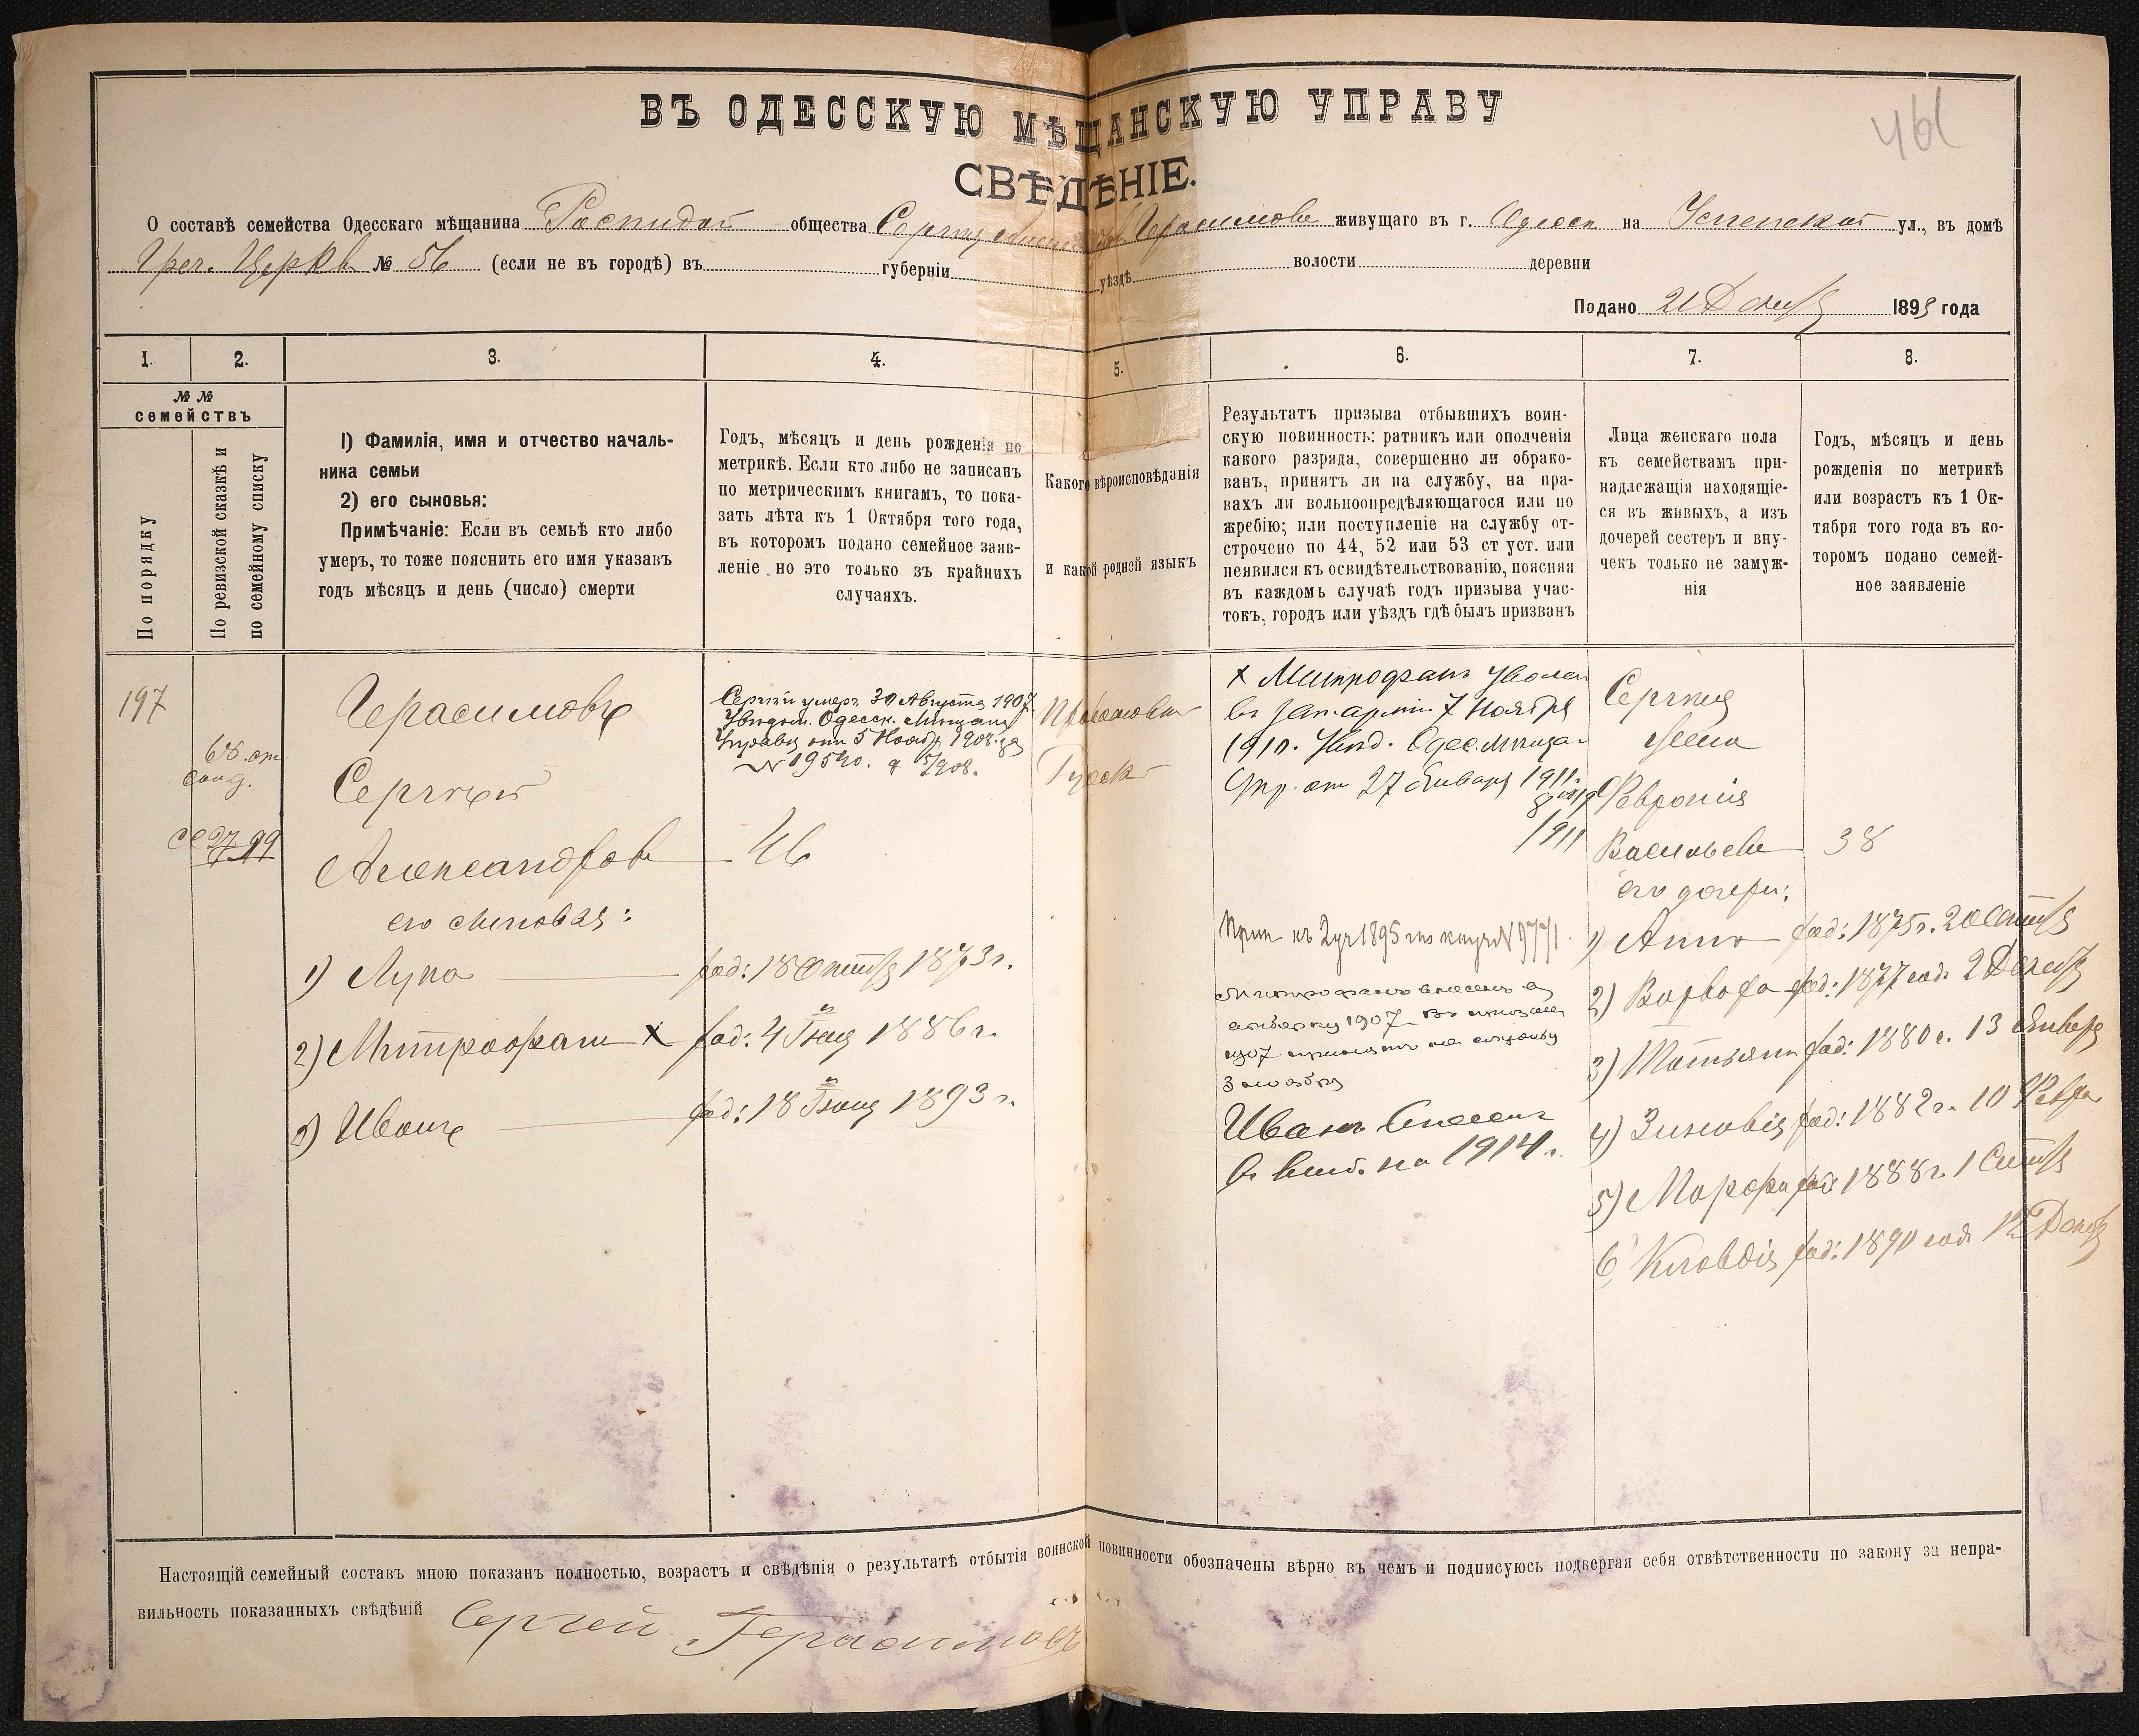 461
ВЪ ОДЕССКУЮ МѢЩАНСКУЮ УПРАВУ
СВѢДѢНІЕ.
О составѣ семейства Одесскаго мѣщанина общества Сергѣя Герасимова живущаго въ г. Одессѣ на Успенской ул., въ домѣ
Греч. Церкви № 56 (если не въ городѣ) въ губерніи уѣздѣ волости деревни
Подано 21 Декабря 1895 года
1. 2. 3. 4. 5. 6. 7. 8.
№ №
семействъ
По порядку
По ревизской сказкѣ и
по семейному списку
1) Фамилія, имя и отчество началь-
ника семьи
2) его сыновья:
Примѣчаніе: Если въ семьѣ кто либо
умеръ, то тоже пояснить его имя указавъ
годъ мѣсяцъ и день (число) смерти
Годъ, мѣсяцъ и день рожденія по
метрикѣ. Если кто либо не записанъ
по метрическимъ книгамъ, то пока-
зать лѣта къ 1 Октября того года,
въ которомъ подано семейное заяв-
леніе но это только въ крайнихъ
случаяхъ.
Какого вѣроисповѣданія
и какой родной языкъ
Результатъ призыва отбывшихъ воин-
скую повинность: ратникъ или ополченія
какого разряда, совершенно ли обрако-
ванъ, принятъ ли на службу, на пра-
вахъ ли вольноопредѣляющагося или по
жребію; или поступленіе на службу от-
строчено по 44, 52 или 53 ст уст. или
неявился къ освидѣтельствованію, поясняя
въ каждомъ случаѣ годъ призыва учас-
токъ, городъ или уѣздъ гдѣ былъ призванъ
Лица женскаго пола
къ семействамъ при-
надлежащія находящіе-
ся въ живыхъ, а изъ
дочерей сестеръ и вну-
чекъ только не замуж-
нія
Годъ, мѣсяцъ и день
рожденія по метрикѣ
или возрастъ къ 1 Ок-
тября того года въ ко-
торомъ подано семей-
ное заявленіе
197
Герасимовъ
Сергѣй
Александров
46
его сыновья:
1) Лука род: 18 Октяб 1873 г.
2) Митрофан X род: 4 Іюня 1886 г.
3) Иванъ род: 18 Іюня 1893 г.
Сергѣй умеръ 30 Августа 1907.
Увѣдом. Одесск. Мѣщанс
Управы отъ 5 Ноября 1908 за
№ 19540.
Православн
Русск
X Митрофанъ уволен
въ зап. арміи 7 Ноября
1910. Увѣд. Одес. Мѣща-
Упр. от 27 Января 1911
1911
Митрофанъ внесенъ въ
1907 принятъ на службу
3 ноября
Иванъ внесенъ
1914 г.
Сергѣя
жена
Февронія
Васильева 38
его дочери:
1) Анна род: 1875 г. 20
2) Варвара род: 1877 года 2 Декаб
3) Татьяна род: 1880 г. 13 Января
4) Зиновія род: 1882 г. 10 Февра
5) Марфа род: 1888 г. 1
6) Клавдія род: 1890 года Декаб
Настоящій семейный составъ мною показанъ полностью, возрастъ и свѣдѣнія о результатѣ отбытія воинской повинности обозначены вѣрно въ чемъ и подписуюсь подвергая себя отвѣтственности по закону за непра-
вильность показанныхъ свѣдѣній Сергей Герасимовъ